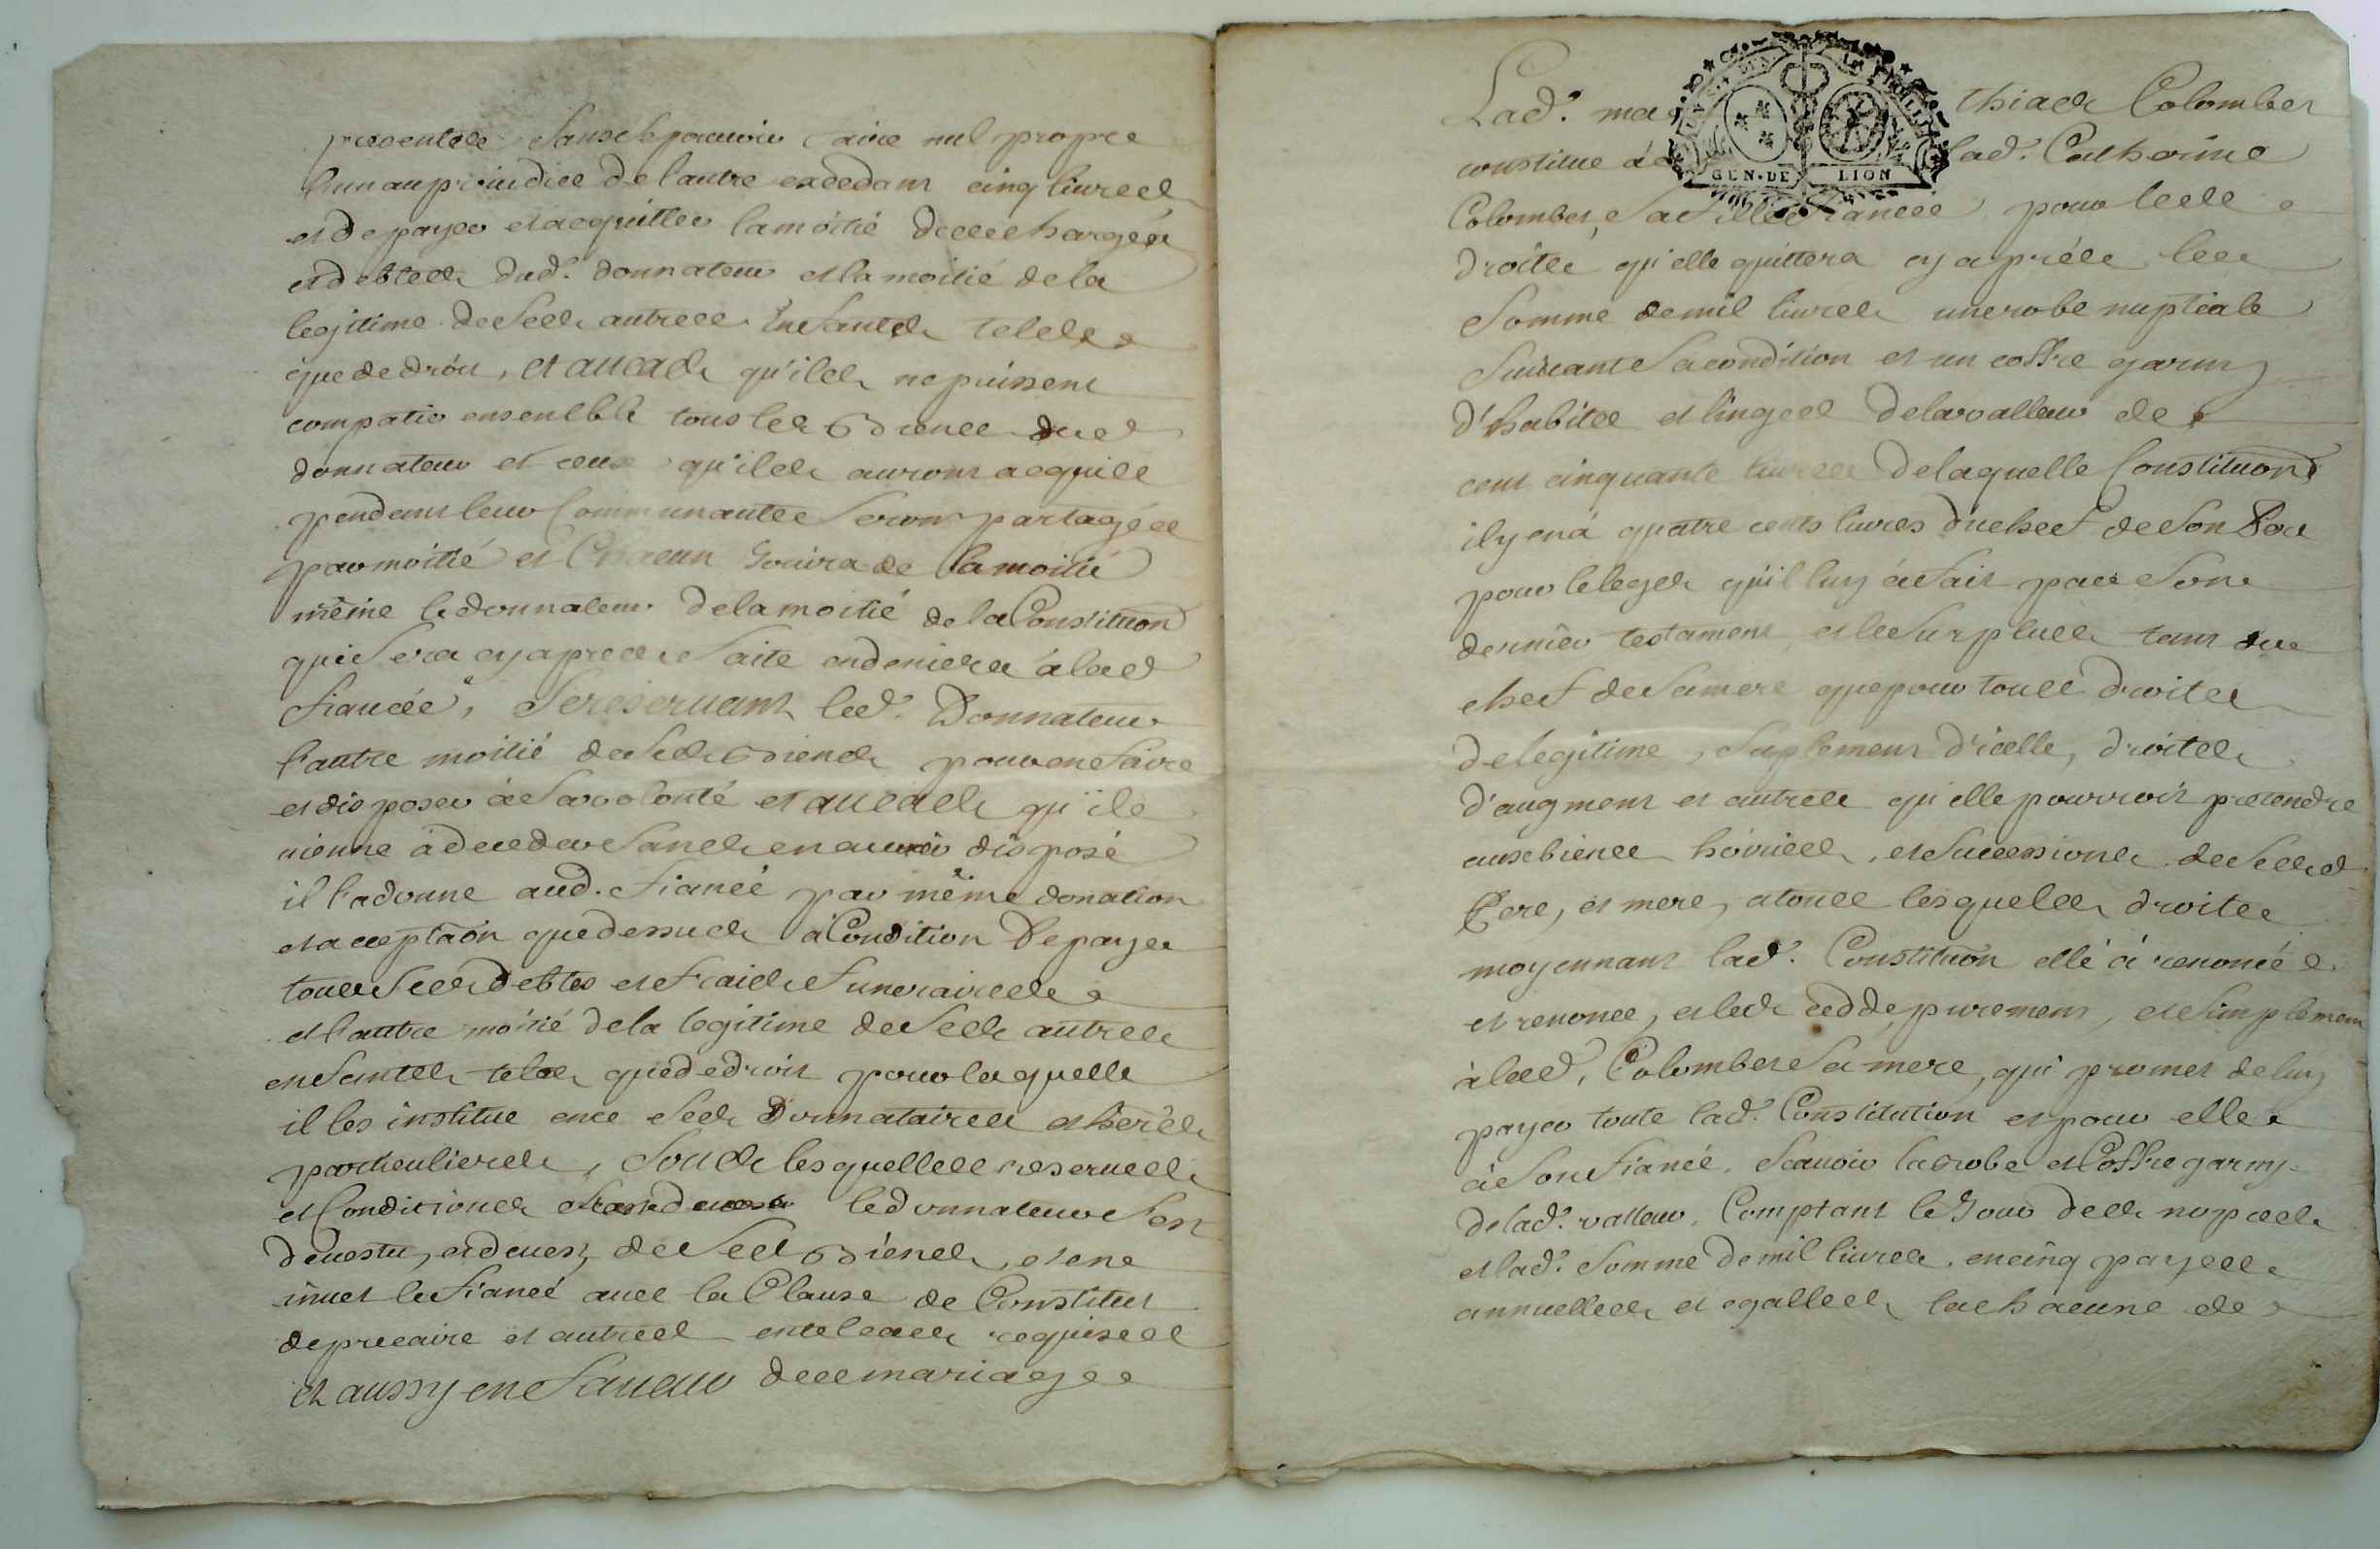 presentes sans le pouvoir faire nul propre
l'un au prejudice de l'autre excedant cinq livres
et de payer et acquitter la moitié des charges
et debtes dud. donnateur et la moitié de la
legitime de ses autres enfants telle
que de droit, et au cas qu'ils ne puissent
compatir ensemble tous les Biens dud
donnateur et ceux qu'ils auront acquis
pendant leur Communauté seront partagés
par moitié et Chacun Jouira de la moitié
même le donnateur de la moitié de la Constituon
qui sera cy apres faite en deniers à lad
fiancée, se reservant led. Donnateur
l'autre moitié de ses Biens pour en faire
et disposer à sa volonté et au cas qu'il
vienne à deceder sans en avoir disposé
il l'a donne aud. fiancé par même donation
et acceptaon que dessus à Condition De payer
tous ses debtes et fraids funeraires
et l'autre moitié de la legitime de ses autres
enfants telle que de droit pour laquelle
il les institue en ce ses Donnataires et herers
particuliers, sous lesquelles reserves
et Conditions le donnateur s'est
devestu, et devest de ses Biens, et en
invet le fiancé avec la Clause de Constitut
de precaire et autres en tel cas requises
et aussy en faveur de ce mariage
Lad. ma thias Colombet
constitue à lad. Catherine
Colombet, sa fille fiancée pour les
droits qu'elle quittera cy après la
somme de mil livres une robe nuptiale
suivant sa condition et un coffre garny
d'habits et linges de la valleur de
cent cinquante livres de laquelle Constituon
il y en a quatre cents livres du chef de son Pere
pour le legs qu'il luy a fait par son
dernier testament et le surplus tant du
chef de sa mere que pour tous droits
de legitime, suplement d'icelle, droits
d'augment et autres qu'elle pourroit pretendre
aux biens hoiries, et successions de sesd
Pere, et mere, a tous lesquels droits
moyennant lad. Constituon elle à renoncé
et renonce, et les cedde purement, et simplement
à lad. Colombet sa mere, qui promet de luy
payer toute lad. Constitution et pour elle
à son fiancé, scavoir la robe et Coffre garny
de lad. valleur, Comptant le Jour des nopces
et lad. somme de mil livres, en cinq payes
annuelles et egalles la chacune de